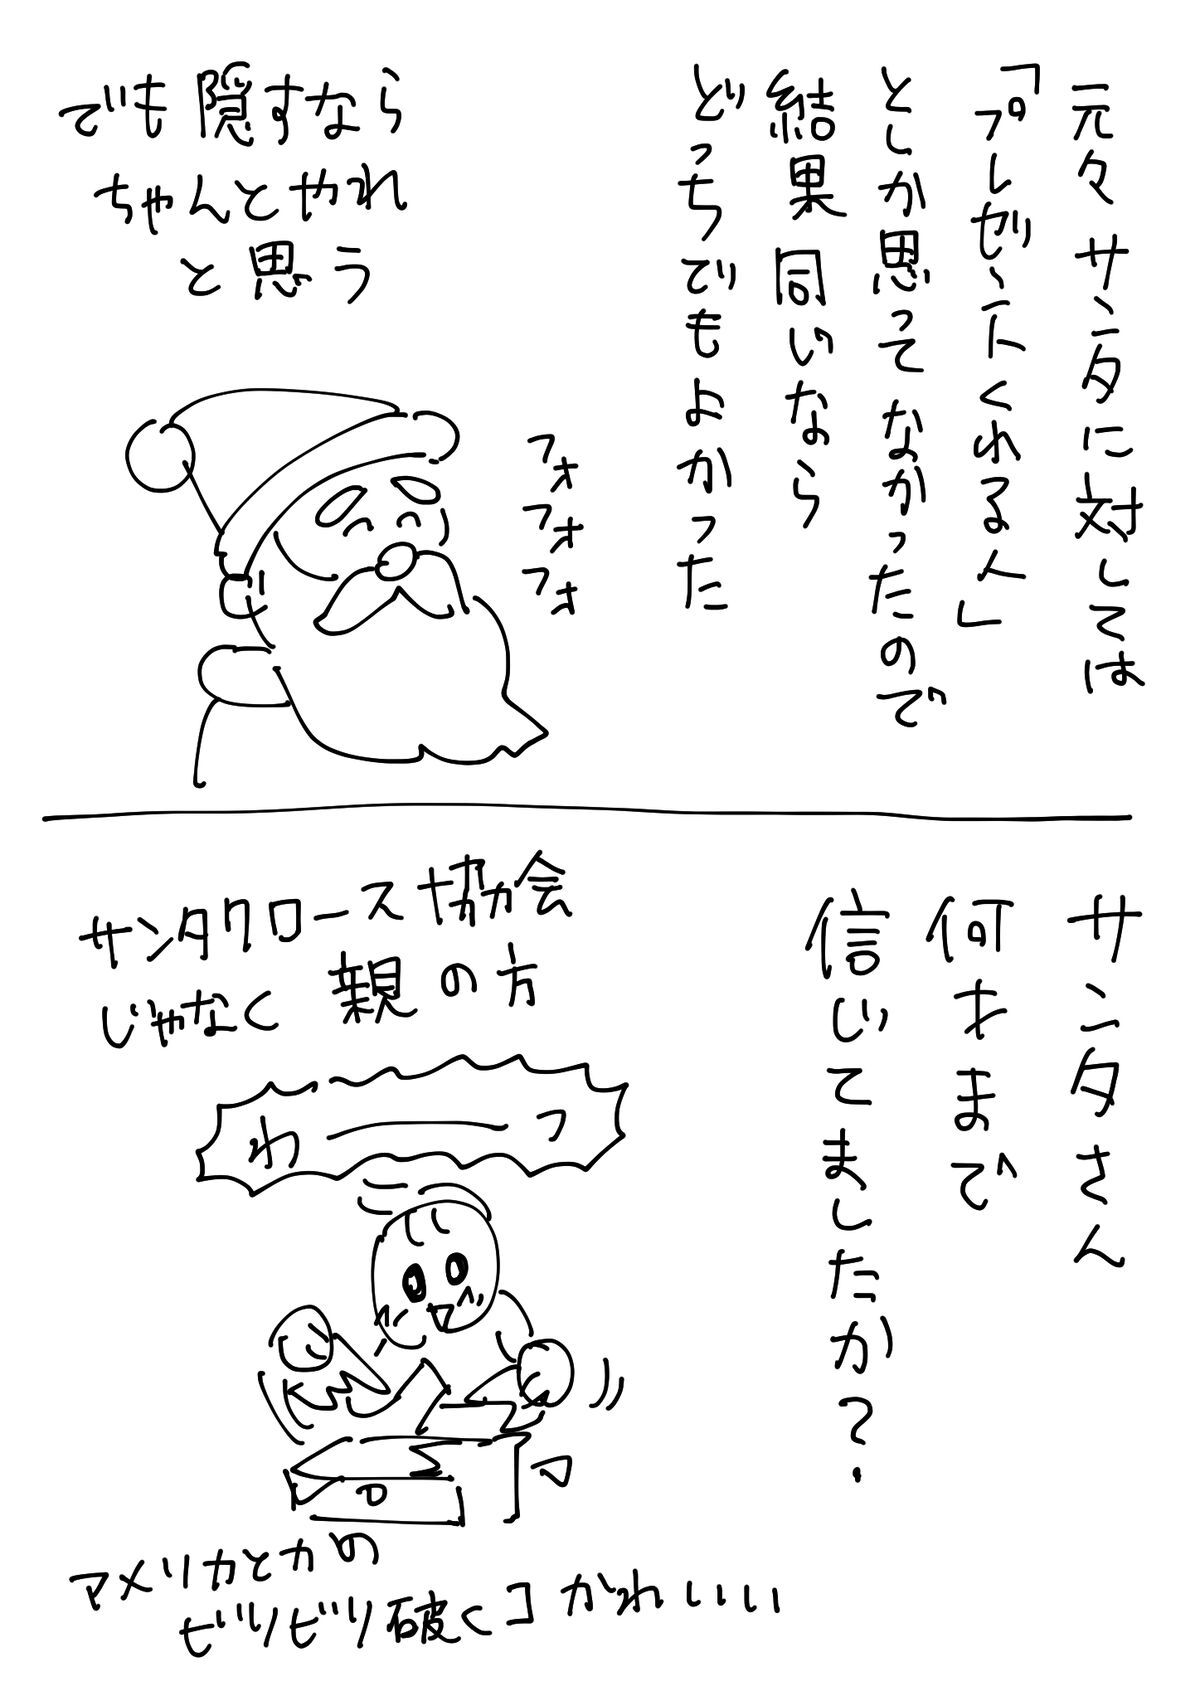 元々サンタに対しては
「プレゼントくれる人」
としか思ってなかったので
結果同いなら
どっちでもよかった
でも隠すなら
ちゃんとやれ
と思う
フォフォフォ
サンタさん
何才まで
信じてましたか？
サンタクロース協会
じゃなく親の方
わーっ
アメリカとかの
ビリビリ破くコかわいい